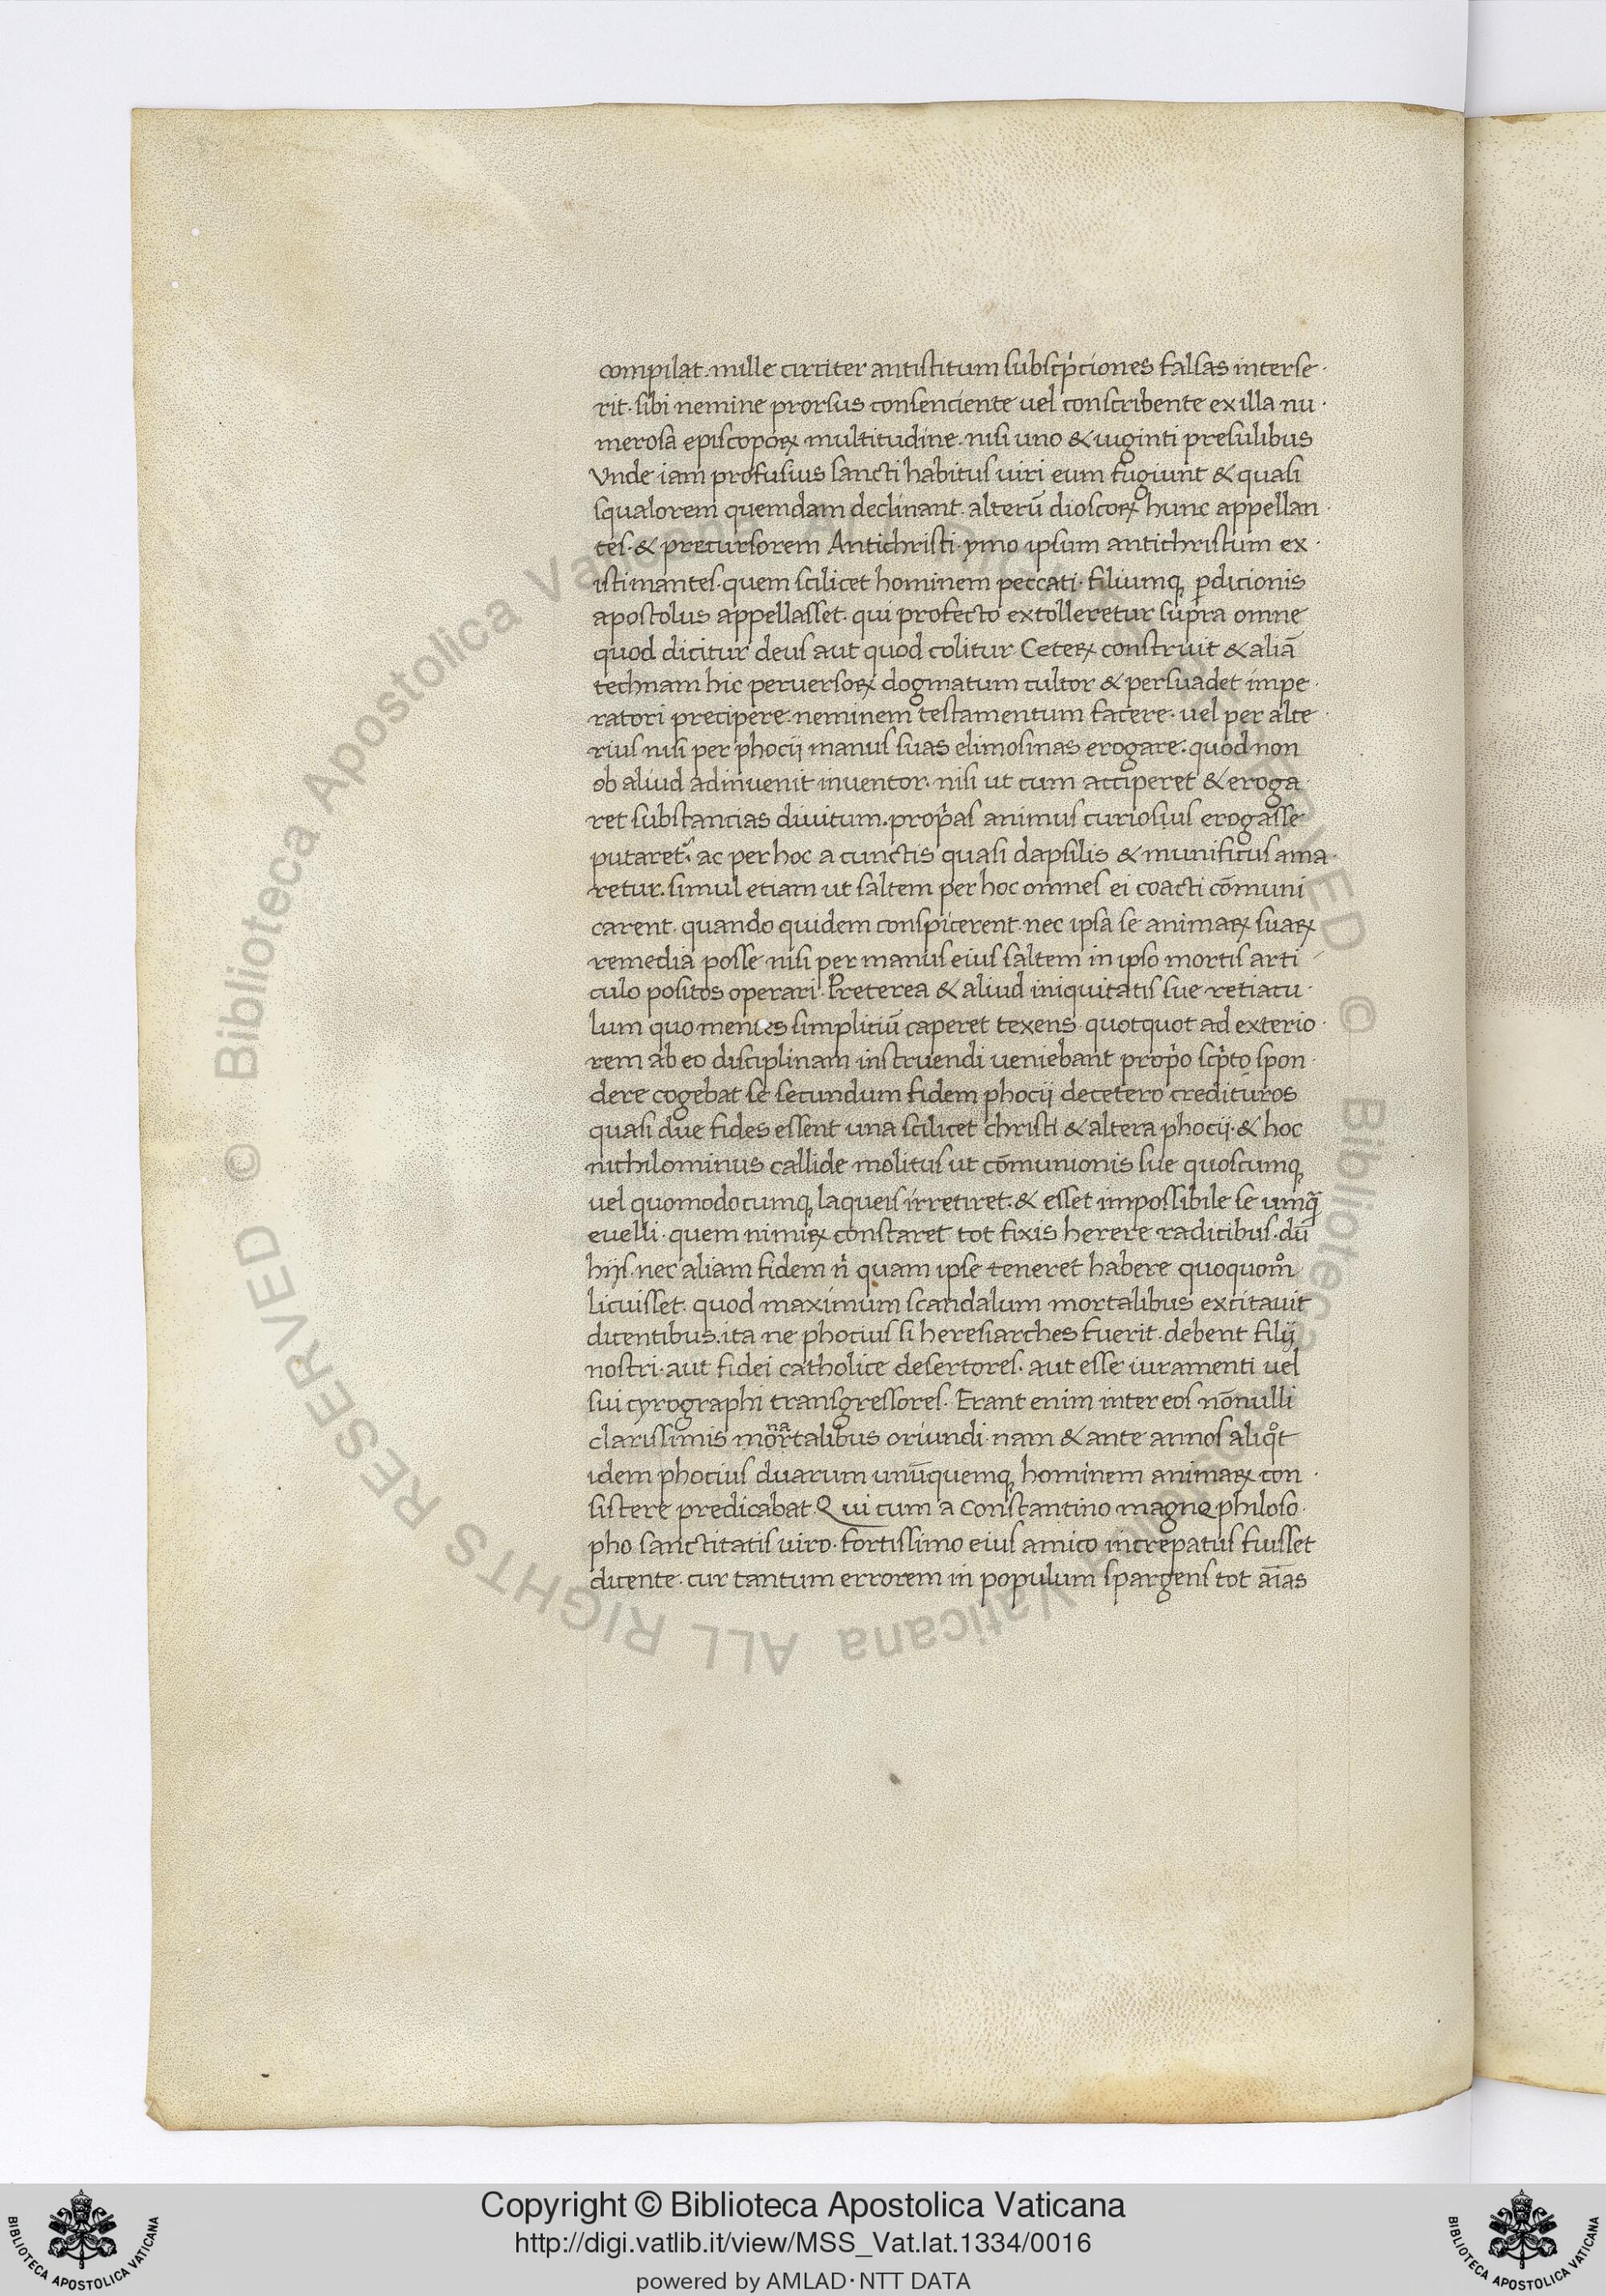 compilat. mille circiter antistitum subscp̄ciones falsas interse·
rit. sibi nemine prorsus consenciente uel conscribente ex illa nu·
merosa episcoporꝝ multitudine. nisi uno & uiginti presulibus
Vnde iam profusius sancti habitus uiri eum fugiunt & quasi
squalorem quemdam declinant. alterū dioscorꝝ hunc appellan·
tes. & precursorem Antichristi. ymo ipsum antichristum ex·
istimantes. quem scilicet hominem peccati. filiumqꝫ ꝑdicionis
apostolus appellasset. qui profecto extolleretur supra omne
quod dicitur deus aut quod colitur. Ceterꝝ construit & aliā
technam hic peruersorꝝ dogmatum cultor & persuadet impe·
ratori precipere. neminem testamentum facere. uel per alte·
rius nisi per phocij manus suas elimosinas erogare. quod non
ob aliud adinuenit inuentor. nisi ut cum acciperet & eroga·
ret substancias diuitum. prop̄as animus curiosius erogasse
putaret. ac per hoc a cunctis quasi dapsilis & munificus ama·
retur. simul etiam ut saltem per hoc omnes ei coacti cōmuni
carent. quando quidem conspicerent. nec ipsa se animarꝝ suarꝝ
remedia posse nisi per manus eius saltem in ipso mortis arti
culo positos operari. Preterea & aliud iniquitatis sue retiacu·
lum quo mentes simpliciū caperet texens. quotquot ad exterio·
rem ab eo disciplinam instruendi ueniebant prop̄o scp̄to spon·
dere cogebat se secundum fidem phocij decetero credituros
quasi due fides essent una scilicet christi & altera phocij. & hoc
nichilominus callide molitus ut cōmunionis sue quoscumqꝫ
uel quomodocumqꝫ laqueis irretiret. & esset impossibile se umq̄
euelli. quem nimirꝝ constaret tot fixis herere radicibus. dū
hijs. nec aliam fidem n̄ quam ipse teneret habere quoquom̊
licuisset. quod maximum scandalum mortalibus excitauit
dicentibus. ita ne phocius si heresiarches fuerit. debent filij
nostri. aut fidei catholice desertores. aut esse iuramenti uel
sui cyrographi transgressores. Erant enim inter eos nōnulli
na
clarissimis mortalibus oriundi. nam & ante annos aliq̊t
idem phocius duarum unūquemqꝫ hominem animarꝝ con·
sistere predicabat. Qui cum a Constantino magno philoso·
pho sanctitatis uiro. fortissimo eius amico increpatus fuisset
dicente. cur tantum errorem in populum spargens tot aīas
Copyright © Biblioteca Apostolica Vaticana
http://digi.vatlib.it/view/MSS_Vat.lat.1334/0016
powered by AMLAD·NTT DATA
BIBLIOTECA APOSTOLICA VATICANA
BIBLIOTECA APOSTOLICA VATICANA
© Biblioteca Apostolica Vaticana ALL RIGHTS RESERVED © Biblioteca Apostolica Vaticana ALL RIGHTS RESERVED